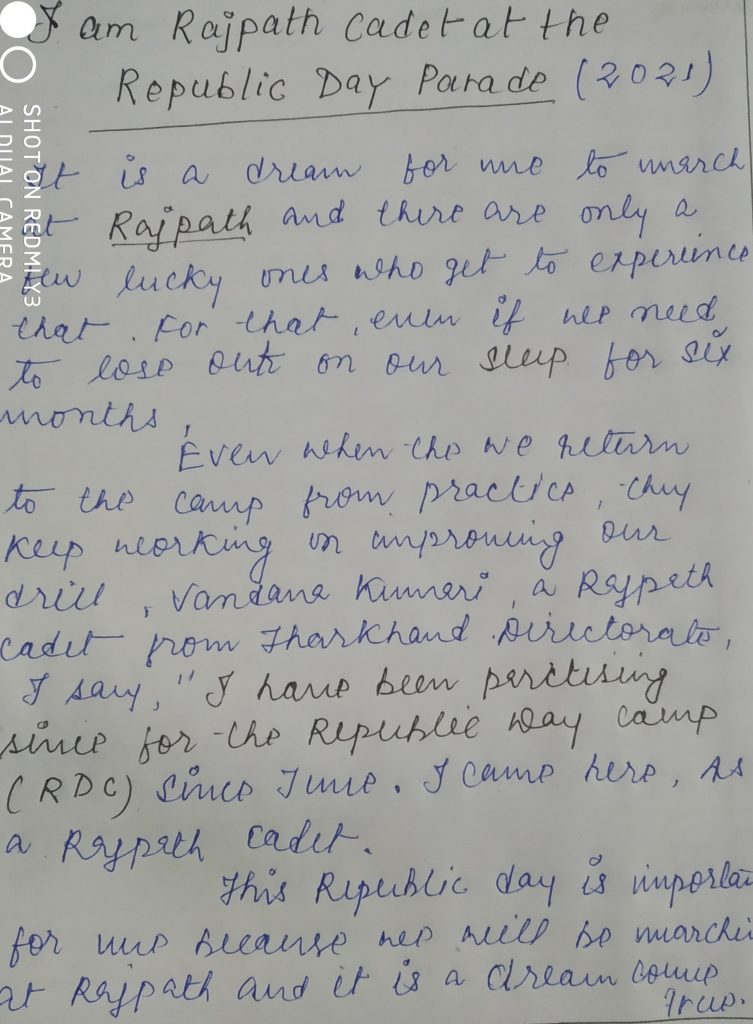 I am Rajpath Cadet at the
Republic Day Parade (2021)
It is a dream for me to march
at Rajpath and there are only a
few lucky ones who get to experience
that. For that, even if we need
to lose out on our sleep for six
months,
Even when the we return
to the camp from practice, they
keep working on improving our
drill, Vandana Kumari, a Rajpath
cadet from Jharkhand Directorate,
I say, "I have been perctising
since for the Republic Day camp
(RDC) since June. I came here, As
a Rajpath cadet.
This Republic day is importan
for me because we will be marchi
at Rajpath and it is a dream come
true.
SHOT ON REDMI Y3
AI DUAL CAMERA